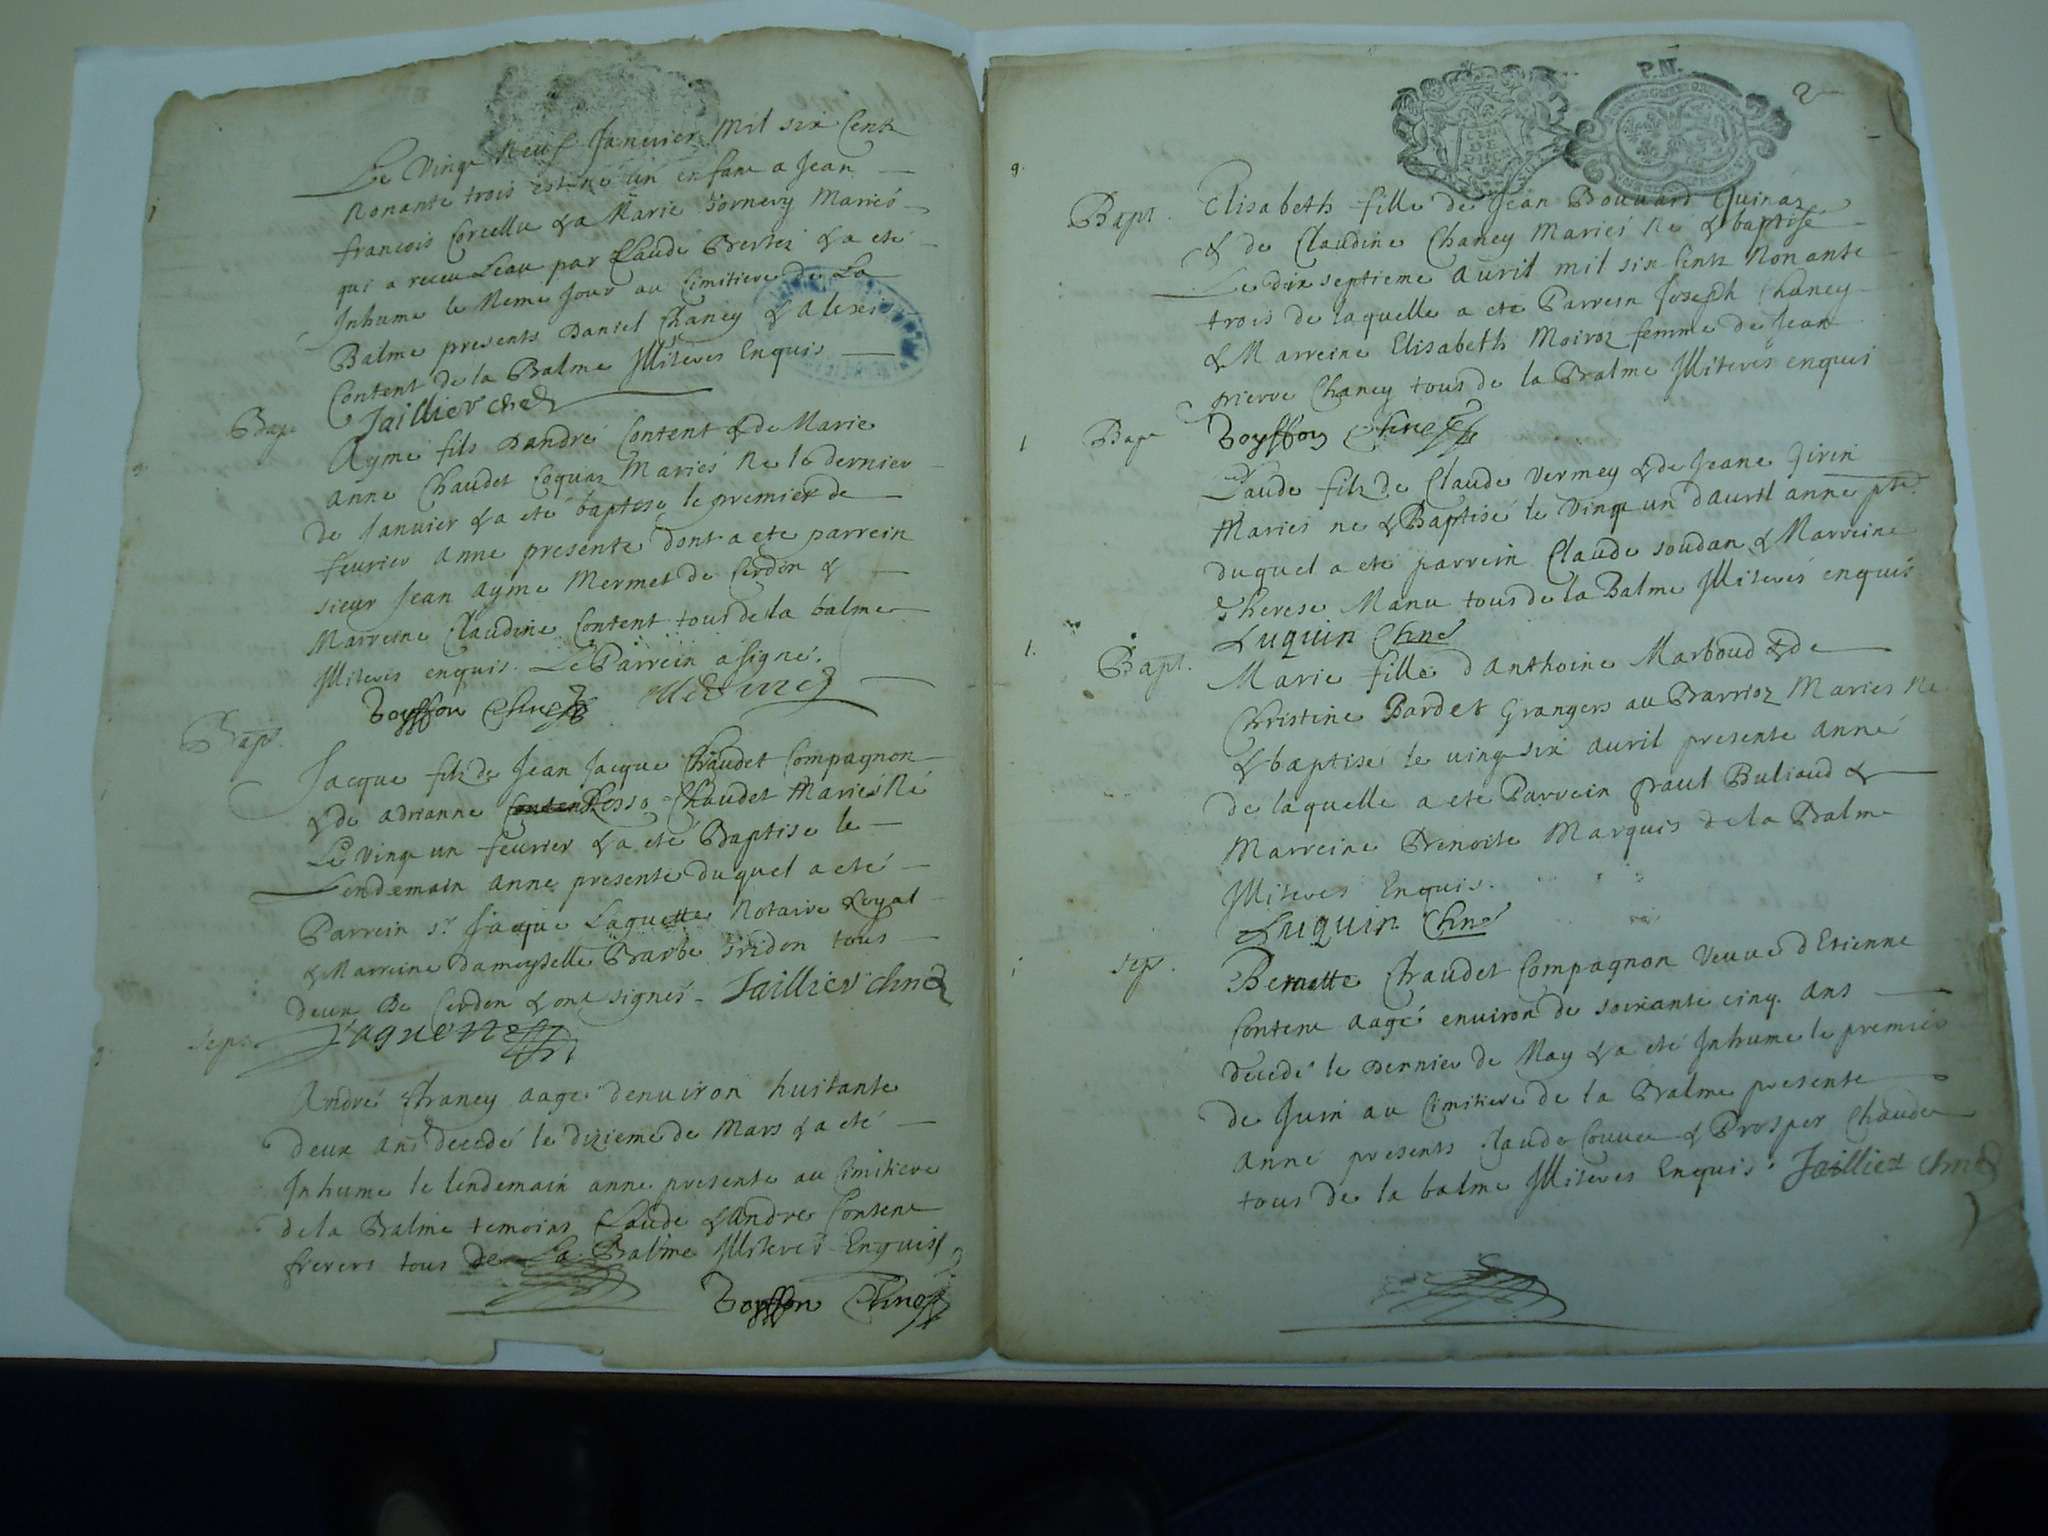 Le Vingt Neuf Janvier Mil six Cents
Nonante trois est né un enfant a Jean
francois Corcellu & a Marie Mariés
qui a receu Leau par Claude & a eté
Inhumé le Meme Jour au Cimitiere de La
Balme presents Daniel Chaney &
Content de la Balme Illiterés Enquis
Jaillier
Bapt
Ayme fils Dandré Content & de Marie
anne Chaudet Coquaz Mariés Né le dernier
de Janvier & a eté baptisé le premier de
feurier anne presente dont a ete parrein
sieur Jean ayme Mermet de Cerdon &
Marreine Claudine Content tous de la balme
Illiterés enquis. Le Parrein a signé.
Boysson
Bapt.
Jacque filz de Jean Jacque Chaudet Compagnon
& de adrianne Chaudet Mariés Né
Le Vingt un feurier & a eté Baptisé le
Lendemain anne presente duquel a eté
Parrein sr. Jaque Laguette Notaire Royal
& Marreine dameyselle Barbe Gridon tous
deux De Cerdon & ont signés Jaillier
Sep: Laguette
André Chaney aagé denuiron huitante
deux ans decedé le dizieme de Mars & a eté
Inhumé le lendemain anne presente au Cimitiere
de la Balme temoins Claude & André Content
freres tous de La Balme Illiterés Enquis
Boysson
P.M.
2
Bapt. Elisabeth fille de Jean Bouuard Guinaz
& de Claudine Chaney Mariés Né & baptisé
Le dix septieme auril mil six Cents Nonante
trois de laquelle a eté Parrein Joseph Chaney
& Marreine Elisabeth Moiroz femme de Jean
pierre Chaney tous de la Balme Illiterés enquis
Bapt Boysson
Claude filz de Claude Vermey & de Jeane Jirin
Mariés né & Baptisé le Vingt un dauril anne pte.
duquel a eté parrein Claude soudan & Marreine
Therese Manu tous de la Balme Illiterés enquis
Luquin
Bapt. Marie fille d'Anthoine Marboud & de
Christine Bardet Grangers au Barrioz Mariés Né
& baptisé le uingt six auril presente anné
de laquelle a eté Parrein Buliaud &
Marreine Benoite Marquis de la Balme
Illiterés Enquis.
Luquin
Sep. Bernette Chaudet Compagnon Veuue d'Etienne
Content aagé enuiron de soixante cinq ans
decedé le Dernier de May & a eté Inhumé le premier
de Juin au Cimitiere de la Balme presente
anné presents Claude & Prosper Chaudet
tous de la balme Illiterés Enquis. Jaillier